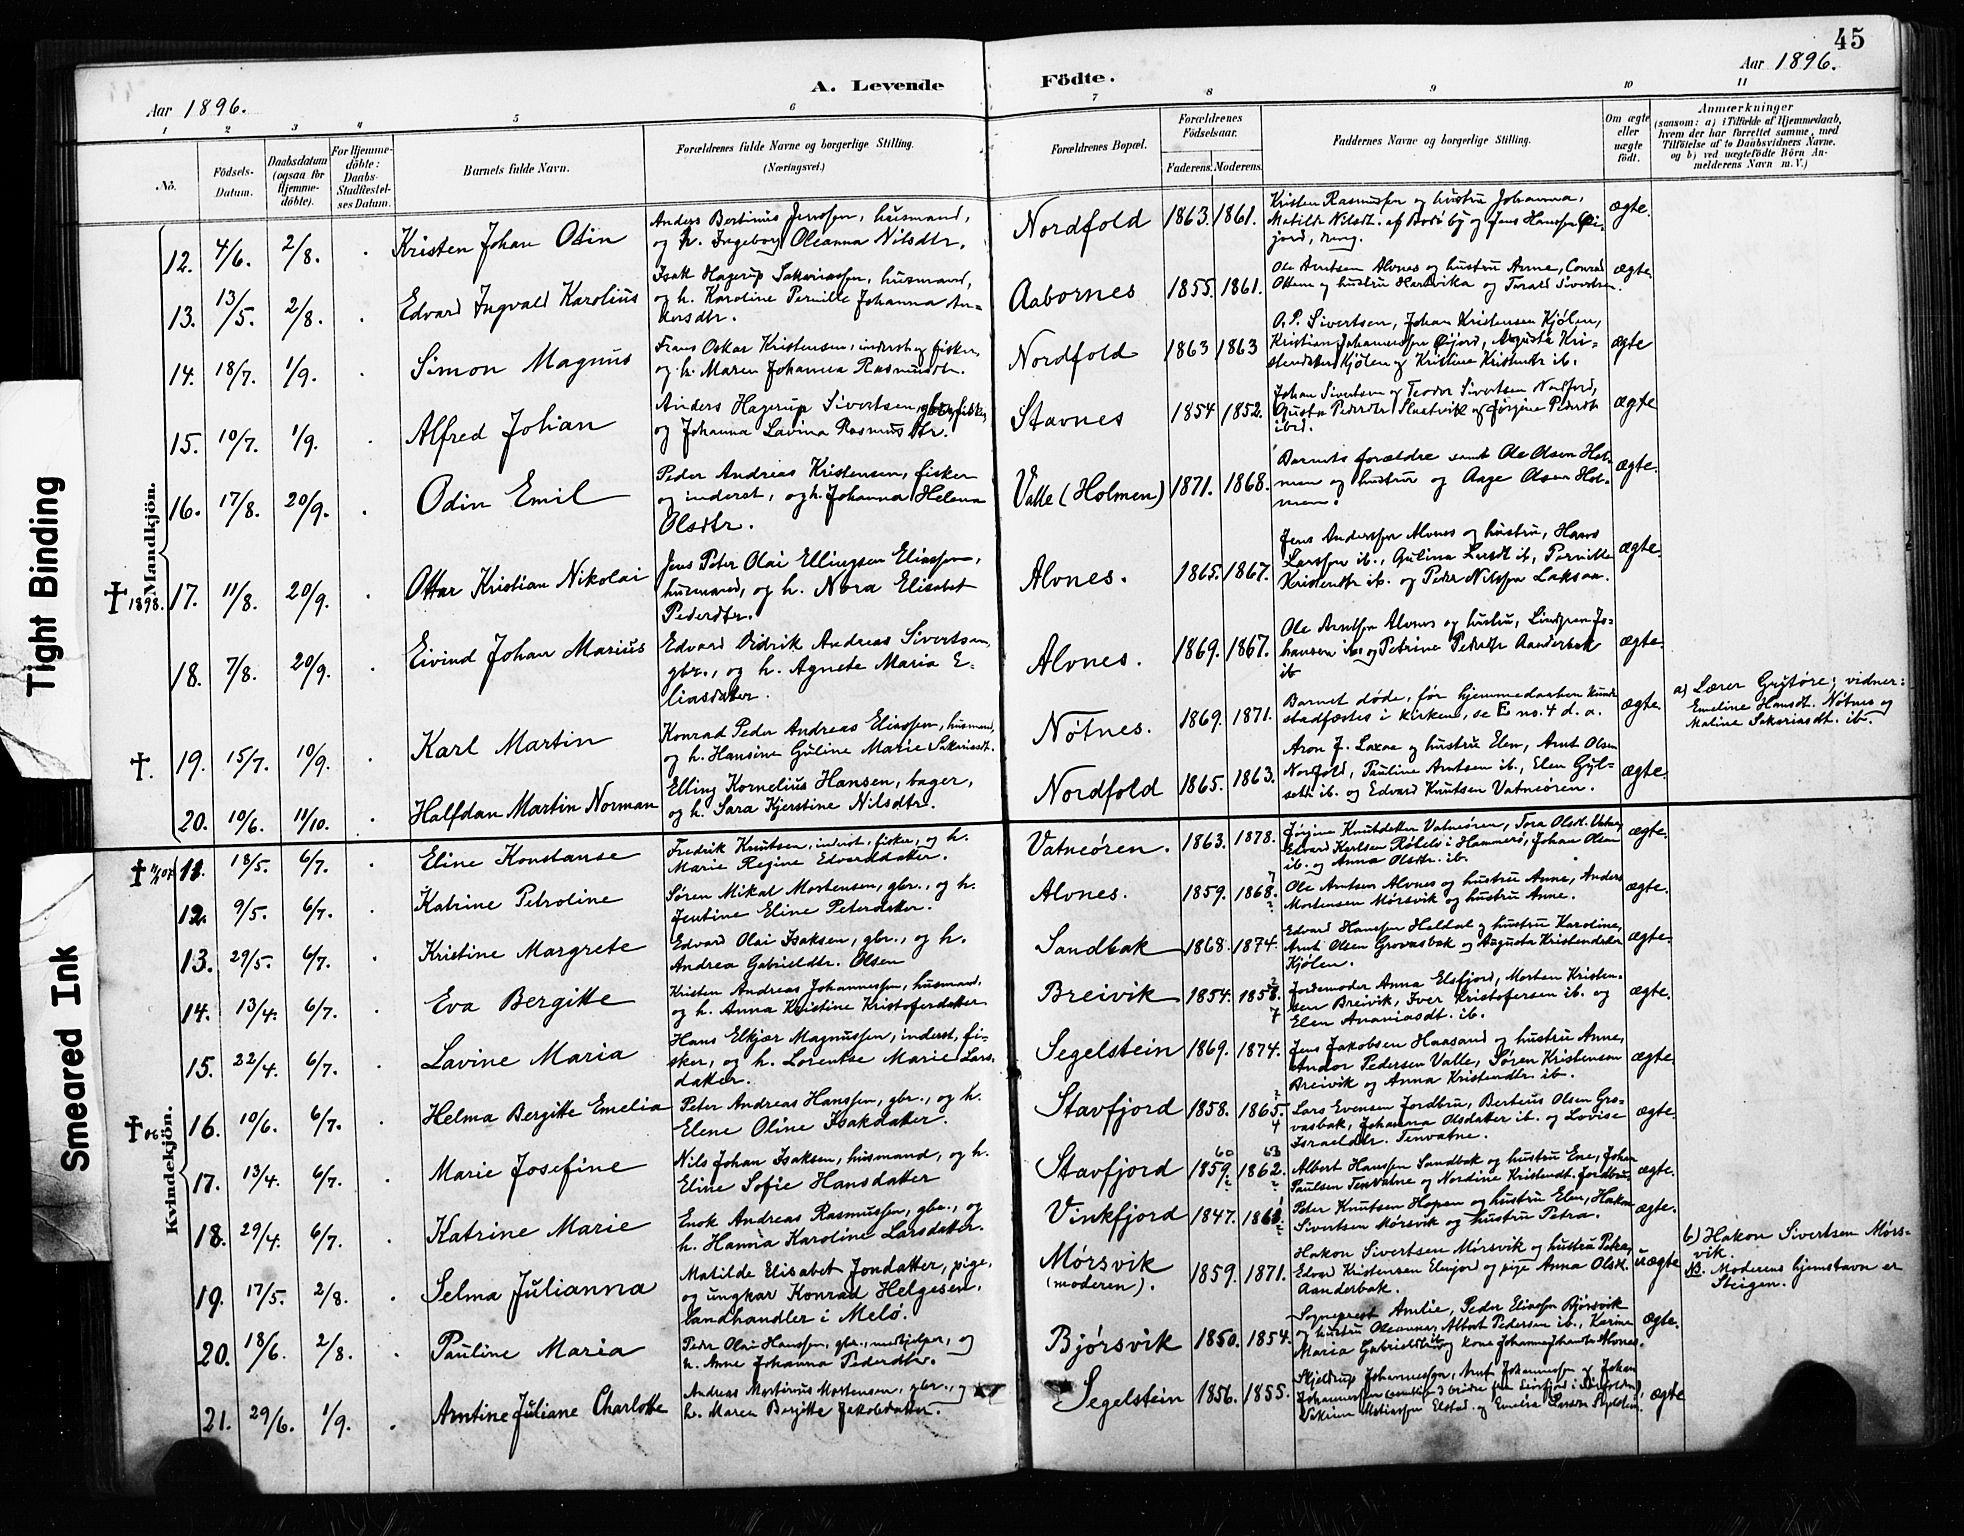 45
Aar 1896.
A. Levende Födte.
Aar 1896.
1 2 3 4 5 6 7 8 9 10 11
No.
Födsels-Datum.
Daabsdatum (ogsaa for Hjemme-döbte).
For Hjemme-döbte: Daabs-Stadfæstel-ses Datum.
Barnets fulde Navn.
Forældrenes fulde Navne og borgerlige Stilling.
(Næringsvei.)
Forældrenes Bopæl.
Forældrenes Födselsaar.
Faderens. Moderens.
Faddernes Navne og borgerlige Stilling.
Om ægte eller uægte födt.
Anmærkninger
(saasom: a) i Tilfælde af Hjemmedaab,
hvem der har forrettet samme, med
Tilföielse af to Daabsvidners Navne,
og b) ved uægtefödte Börn An-
melderens Navn m. V.)
Tight Binding
Smeared Ink
Mandkjön.
12. 4/6. 2/8. Kristen Johan Odin
Anders Bertinus Jenssen, husmand,
og h. Ingeborg Oleanna Nilsdtr.
Nordfold 1863. 1861.
Kristen Rasmussen og hustru Johanna,
Matilde Nilsdt. af Bodö by og Jens Hanssen Øi-
jord, ung.
ægte.
13. 13/5. 2/8. Edvard Ingvald Karolius
Isak Hagerup Sakariassen, husmand,
og h. Karoline Pernille Johanna An-
kersdtr.
Aabornes 1855. 1861.
Ole Arntsen Alvnes og hustru Anne, Conrad
Ottem og hustru Hartvika og Torald Sivertsen.
ægte.
14. 18/7. 1/9. Simon Magnus
Frans Oskar Kristensen, inderst og fisker,
og h. Maren Johanna Rasmusdtr.
Nordfold 1863 1863
O. P. Sivertsen, Johan Kristensen Kjölen,
Kristian Johannessen Øijord, Augusta Kri-
stensdatter Kjölen og Kristine Kristensdtr ib.
ægte
15. 10/7. 1/9. Alfred Johan
Anders Hagerup Sivertsen, gbr. og fisker,
og Johanna Lavina Rasmusdtr.
Stavnes 1854 1852.
Johan Sivertsen og Teodor Sivertsen Nordfold,
Gusta Pedersdtr Slaatvik og Jørgine Pedersdt
ibid.
ægte
16. 17/8. 20/9. Odin Emil
Peder Andreas Kristensen, fisker
og inderst, og h. Johanna Helena
Olsdtr.
Valle (Holmen) 1871. 1868.
Barnets forældre samt Ole Olsen Hol-
men og hustru og Aage Olsen Hol-
men.
ægte.
✝ 1898. 17. 11/8. 20/9. Ottar Kristian Nikolai
Jens Peter Olai Ellingsen Eliassen,
husmand, og h. Nora Elisabet
Pedersdtr.
Alvnes. 1865. 1867.
Jens Anderssen Alvnes og hustru, Hans
Larssen ib., Gulina Larsdt ib., Pernille
Kristensdtr ib. og Peder Nilssen Laksaa.
ægte.
18. 7/8. 20/9. Eivind Johan Marius
Edvard Didrik Andreas Sivertsen,
gbr., og h. Agnete Maria E-
liasdatter.
Alvnes. 1869. 1867.
Ole Arntsen Alvnes og hustru, Lindgren Jo-
hansen ib. og Petrine Pedersdtr Aanderbak
ib
ægte.
✝. 19. 15/7. 10/9. Karl Martin
Konrad Peder Andreas Eliassen, husmand,
og h. Hansine Guline Marie Sakariasdt.
Nøtnes. 1869. 1871.
Barnet døde, før hjemmedaaben kunde
stadfæstes i kirken, se E no. 4 d. a.
ægte.
a) Lærer Grytöre; vidner:
Emeline Hansdt. Nøtnes og
Maline Sakariasdt. ib.
20. 10/6. 11/10. Halfdan Martin Norman
Elling Kornelius Hansen, bager,
og h. Sara Kjerstine Nilsdtr.
Nordfold 1865. 1863.
Aron J. Laxaa og hustru Elen, Arnt Olsen
Nordfold, Pauline Arntsen ib., Elen Gyl-
seth ib. og Edvard Knutsen Vatneören.
ægte.
Kvindekjön.
✝ 11. 18/5. 6/7. Eline Konstanse
Fredrik Knutsen, inderst, fisker, og h.
Marie Regine Edvardsdatter.
Vatneören. 1863. 1878.
Jørgine Knutsdatter Vatneören, Tora Olsdt.
Edvard Karlsen Røtelö i Hammerö, Johan Olsen
ib. og Anna Olsdtr. ib.
ægte.
12. 9/5. 6/7. Katrine Petroline
Sören Mikal Mortensen, gbr., og h.
Jentine Eline Petersdatter.
Alvnes. 1859. 1868.
Ole Arntsen Alvnes og hustru Anne, Anders
Mortensen Mørsvik og hustru Anne.
ægte.
13. 29/5. 6/7. Kristine Margrete
Edvard Olai Isaksen, gbr., og h.
Andrea Gabrielsdtr. Olsen
Sandbak 1868. 1874.
Edvard Hanssen Heldal og hustru Karoline,
Arnt Olsen Grovasbak og Augusta Kristensdatter
Kjölen.
ægte.
14. 13/4. 6/7. Eva Bergitte
Kristen Andreas Johannessen, husmand,
og h. Anna Kristine Kristofersdatter
Breivik 1854. 1858.
Jordemoder Anna Elsfjord, Morten Kristen-
sen Breivik, Iver Kristofersen ib. og
Elen Ananiasdt. ib.
ægte.
15. 22/4. 6/7. Lavine Maria
Hans Elkjær Magnussen, inderst, fi-
sker, og h. Lorentse Marie Lars-
datter.
Segelstein 1869. 1874.
Jens Jakobsen Haasand og hustru Anne,
Andor Pedersen Valle, Sören Kristensen
Breivik og Anna Kristensdtr. ib.
ægte.
✝ 06 16. 10/6. 6/7. Helma Bergitte Emelia
Peter Andreas Hanssen, gbr., og h.
Elene Oline Isaksdatter.
Stavfjord 1858. 1865.
Lars Evensen Jordbru, Berteus Olsen Gro-
vasbak, Johanna Olsdatter ib. og Lovise
Israelsdtr. Tenvatne.
ægte.
17. 13/4. 6/7. Marie Josefine
Nils Johan Isaksen, husmand, og h.
Eline Sofie Hansdatter
Stavfjord 1859. 1862.
60 63
Albert Hanssen Sandbak og hustru Ene, Johan
Paulsen Tenvatne og Nordine Kristensdt. Jordbru.
ægte.
18. 29/4. 6/7. Katrine Marie
Enok Andreas Rasmussen, gbr., og
h. Hanna Karoline Larsdatter.
Vinkfjord 1847.
Peter Knutsen Hopen og hustru Elen, Hakon
Sivertsen Mørsvik og hustru Petra.
ægte.
19. 17/5. 2/8. Selma Julianna
Matilde Elisabet Jonsdatter, pige,
og ungkar Konrad Helgesen,
landhandler i Melö.
Mørsvik
(moderen).
1859. 1871.
Hakon Sivertsen Mørsvik og hustru Petra,
Edvard Kristensen Elvjord og pige Anna Olsdt.
Aanderbak.
uægte
b) Hakon Sivertsen Mørs-
vik.
NB. Moderens hjemstavn er
Steigen.
20. 18/6. 2/8. Pauline Maria
Peder Olai Hanssen, gbr., medhjelper, og
h. Anne Johanna Pedersdtr.
Bjørsvik 1850. 1854.
Sogneprest Amlie, Peder Eliassen Bjørsvik
og hustru Oleanna, Albert Pedersen ib., Karine
Maria Gabrielsdtr ib og kone Johanna Alvnes.
ægte.
21. 29/6. 1/9. Arntine Juliane Charlotte
Andreas Martinus Mortensen, gbr., og
h. Maren Bergitte Jakobsdatter.
Segelstein 1856. 1855.
Skjeldrup Johannessen, Arnt Johannessen og Johan
Johannessen
og Emelie Larsen Segelstein.
ægte